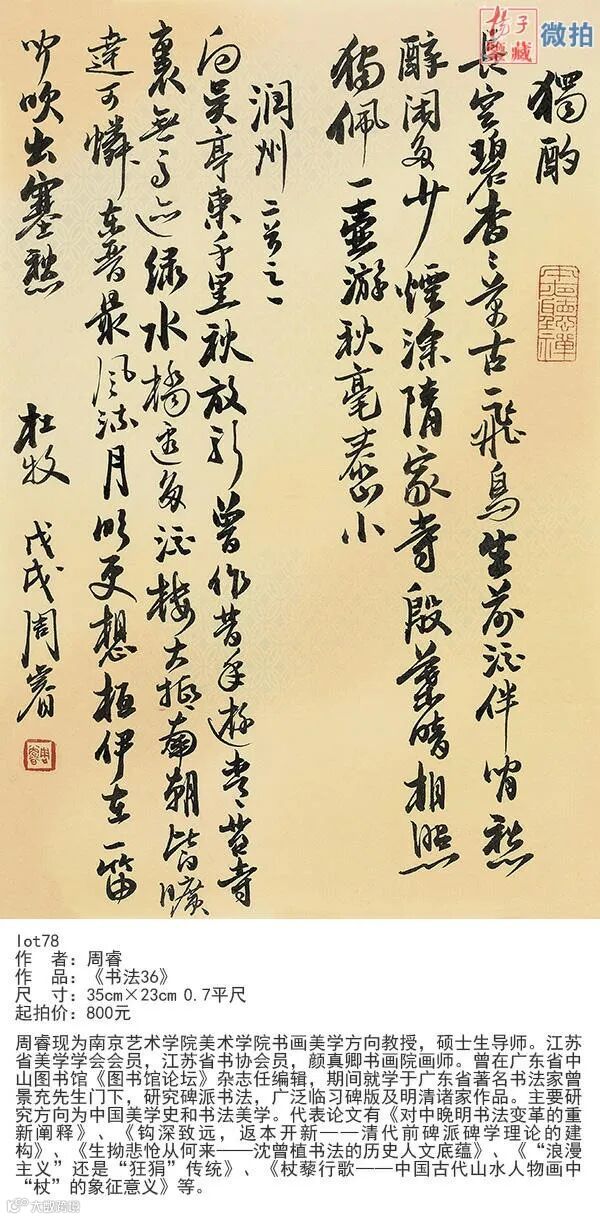 揚子鑒藏 微拍
獨酌
長空碧杳〻萬古一飛鳥生前酒伴閒愁
醉闲多少煙深隋家寺殷葉暗相照
獨佩一壺游秋毫泰山小
润州 二首之一
向吴亭東千里秋放歌曾作昔年遊青苔寺
裏無馬迹绿水橋邊多酒樓大抵南朝皆曠
達可憐東晋最風流月明更想桓伊在一笛
聞吹出塞愁
杜牧 戊戌周睿
lot78
作 者：周睿
作 品：《书法36》
尺 寸：35cm×23cm 0.7平尺
起拍价：800元
周睿现为南京艺术学院美术学院书画美学方向教授，硕士生导师。江苏
省美学学会会员，江苏省书协会员，颜真卿书画院画师。曾在广东省中
山图书馆《图书馆论坛》杂志任编辑，期间就学于广东省著名书法家曾
景充先生门下，研究碑派书法，广泛临习碑版及明清诸家作品。主要研
究方向为中国美学史和书法美学。代表论文有《对中晚明书法变革的重
新阐释》、《钩深致远，返本开新——清代前碑派碑学理论的建
构》、《生拗悲怆从何来——沈曾植书法的历史人文底蕴》、《“浪漫
主义”还是“狂狷”传统》、《杖藜行歌——中国古代山水人物画中
“杖”的象征意义》等。
大欧跨境